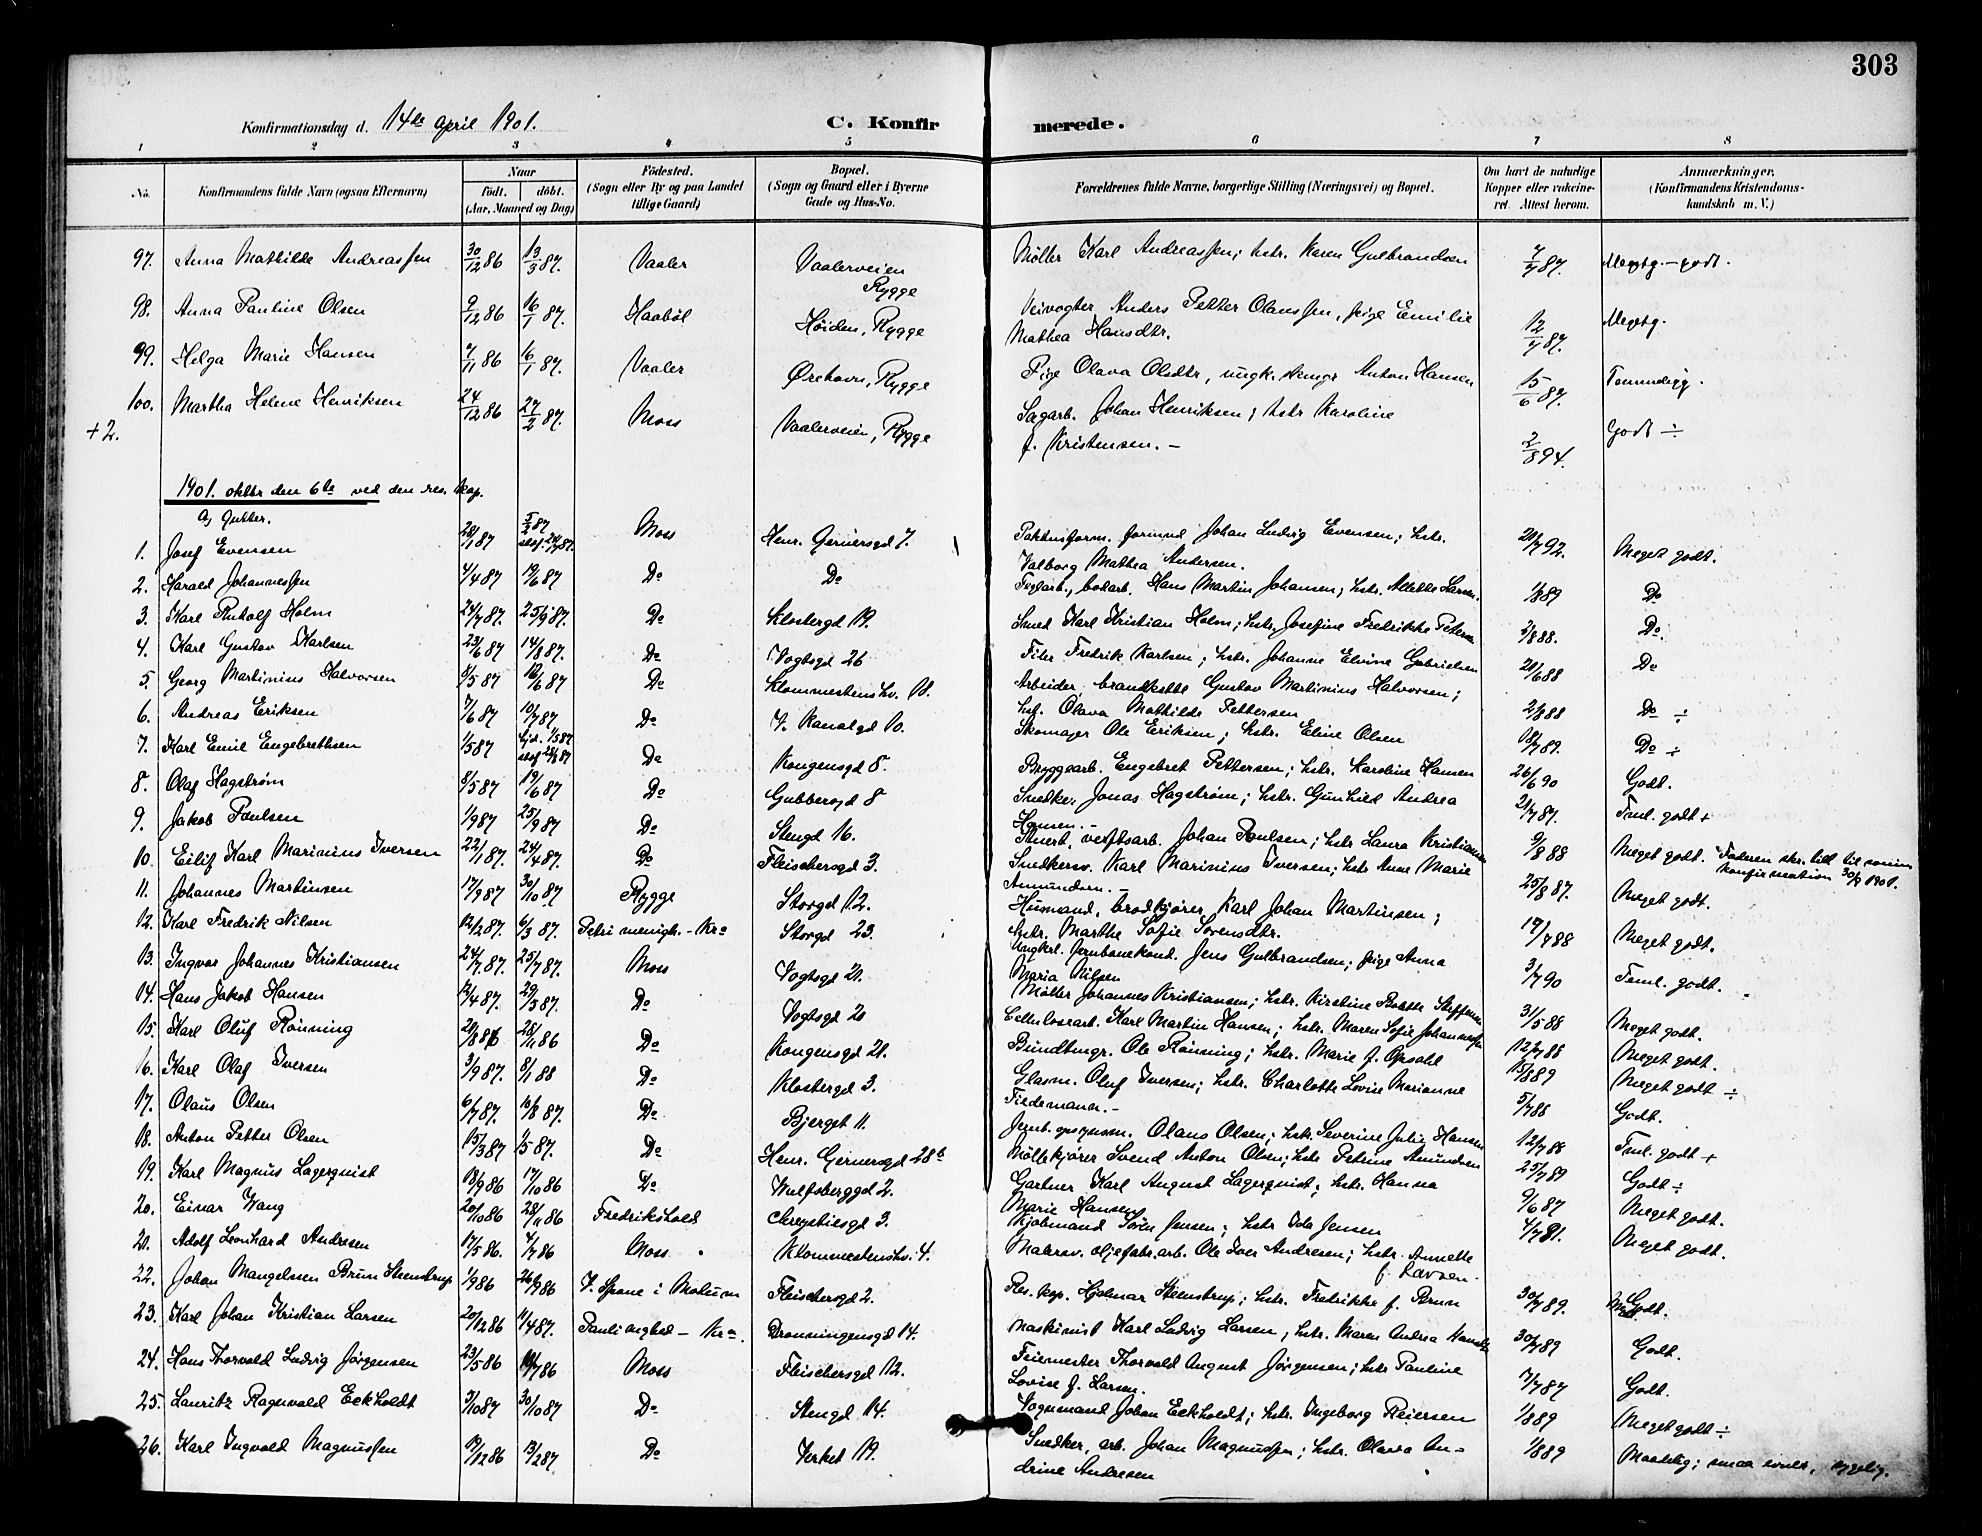 303
Konfirmationsdag d. 14de April 1901. C. Konfirmerede.
1 2 3 4 5 6 7 8
No. Konfirmandens fulde Navn (ogsaa Efternavn) Naar født. døbt. (Aar, Maaned og Dag) Fødested. (Sogn eller By og paa Landet tillige Gaard) Bopæl. (Sogn og Gaard eller i Byerne Gade og Hus-No. Forældrenes fulde Navne, borgerlige Stilling (Næringsvei) og Bopæl. Om havt de naturlige Kopper eller vakcineret. Attest herom. Anmærkninger. (Konfirmandens Kristendomskundskab m. V.)
97. Anna Mathilde Andreassen 30/12 86 13/3 87. Vaaler Vaalerveien Rygge Møller Karl Andreassen; hstr. Karen Gulbrandsen 7/7 87. Megtg. - godt.
98. Anna Pauline Olsen 9/12 86 16/1 87. Haabøl Høiden, Rygge Veivogter Anders Petter Olaussen, pige Emilie Mathea Hansdtr. 12/7 87. Megtg.
99. Helga Marie Hansen 7/11 86 16/1 87. Vaaler Ørehavn, Rygge Pige Olava Olsdtr, ungk. Anton Hansen 15/6 87.
100. Martha Helene Henriksen 24/12 86 27/2 87. Moss Vaalerveien, Rygge Sagarb. Johan Henriksen; hstr Karoline f. Kristensen. - 2/8 94. Godt ÷
+2.
1901. oktbr den 6te ved den res. kap.
a, Gutter.
1. Josef Evensen 28/1 87 5/2 87 Moss Henr. Gernersgd 7. formd Johan Ludvig Evensen; hstr. Valborg Mathea Andersen. 20/7 92. Meget godt.
2. Harald Johannessen 4/4 87 19/6 87 Do Do Teglarb., bodarb. Hans Martin Johansen; hstr. Allette Larsen. 1/8 89 Do
3. Karl Rudolf Holm 24/7 87. 25/9 87. Do Klostergd 19. Smed Karl Kristian Holm; hstr, Josefine Fredrikke Petersen 2/8 88. Do.
4. Karl Gustav Karlsen 23/6 87 14/8 87. Do Vogtsgd 26 Filer Fredrik Karlsen; hstr. Johanne Elvine Gabrielsen 20/6 88 Do
5. Georg Martinius Halvorsen 8/5 87 12/6 87 Do Klommestenshv. 18. Arbeider, Gustav Martinius Halvorsen; hst. Olava Mathilde Pettersen 2/8 88 Do ÷
6. Andreas Eriksen 7/6 87 10/7 87 Do V. Kanalgd 10. Skomager Ole Eriksen; hstr. Eline Olsen 18/7 89. Do ÷
7. Karl Emil Engebrethsen 1/5 87 hjd. 1/5 87 Do Kongensgd 8. Bryggearb. Engebret Pettersen; hstr. Karoline Hansen 26/6 90 Godt.
8. Olaf Hagstrøm 8/5 87 19/6 87 Do Gubbergd 8 Snedker Jonas Hagstrøm; hstr. Gunhild Andrea Hansen. - 21/7 87. Teml. godt +
9. Jakob Paulsen 1/9 87 25/9 87 Do Stengd 16. Stuerb, verftsarb. Johan Paulsen; hstr Laura Kristiansen 9/8 88 Meget godt.
10. Eilif Karl Marinius Iversen 22/1 87. 24/4 87. Do Fleischersgd 3. Snedkersv. Karl Marinius Iversen; hstr Anne Marie Amundsen. - 25/8 87. Meget godt. Faderen skr. till. til sønnens konfirmation 30/9 1901.
11. Johannes Martinsen 17/9 87 30/10 87 Rygge Storgd 12. Husmand, brødkjører Karl Johan Martinsen; hstr. Marthe Sofie Sørensdtr. 19/7 88 Meget godt.
12. Karl Fredrik Nilsen 12/2 87. 6/3 87. Petri menigh. - Kra Storgd 23. Ungkrl. Jernbanekond. Jens Gulbrandsen; pige Anna Maria Nilsen 3/7 90 Teml. godt.
13. Ingvar Johannes Kristiansen 24/7 87. 25/7 87. Moss Vogtsgd 21. Møller Johannes Kristiansen; hstr. Kirstine Steffensen 31/5 88 Meget godt.
14. Hans Jakob Hansen 12/4 87. 29/5 87. Do Vogtsgd 21 Cellulosearb. Karl Martin Hansen; hstr. Maren Sofie Johannessen 12/7 88 Meget godt.
15. Karl Oluf Rønning 20/8 86 28/11 86 Do Kongensgd 21. Bundtmgr. Ole Rønning; hstr. Marie f. Opsahl 13/8 89 Meget godt ÷
16. Karl Olaf Iversen 3/9 87. 8/1 88 Do Klostergd 3. Glasm. Oluf Iversen; hstr. Charlotte Lovise Marianne Tiedemann. - 5/7 88 Godt.
17. Olaus Olsen 6/7 87. 10/8 87. Do Bjerget 11. Jernb. opsynsm. Olaus Olsen; hstr. Severine Julie Hansen 12/7 88 Teml. godt +
18. Anton Petter Olsen 15/3 87 1/5 87. Do Henr. Gernersgd 28b Møllekjører Svend Anton Olsen; hstr Petrine Amundsen 25/7 89 Godt ÷
19. Karl Magnus Lagerquist 18/9 86 17/10 86 Do Wulfsberggd 2. Gartner Karl August Lagerquist; hstr. Hanna Marie Hansen 9/6 87 Meget godt.
20. Einar Wang 20/10 86 28/11 86 Fredrikshald Chrystiesgd 3. Kjøbmand Søren Jensen; hstr Ida Jensen 4/7 91. Meget godt.
21. Adolf Leonhard Andresen 17/5 86. 4/7 86 Moss Klommestenshv. 4. Malersv. oljefabr. arb. Ole Iver Andresen; hstr. Annette f. Larsen.
22. Johan Mangelssen Brun Steenstrup 1/9 86 26/9 86 V. Spone i Modum Fleischersgd 2. Res. kap. Hjalmar Steenstrup; hstr. Fredrikke f. Brun 30/7 89. Godt.
23. Karl Johan Kristian Larsen 20/12 86 11/4 87. Pauli - Kra. Dronningensgd 14. Maskinist Karl Ludvig Larsen; hstr. Maren Andrea 30/7 89 Godt.
24. Hans Thorvald Ludvig Jørgensen 23/5 86 18/7 86 Moss Fleischersgd 12. Feiermester Thorvald August Jørgensen; hstr Pauline Lovise f. Larsen. 7/7 87 Godt.
25. Lauritz Ragnvald Eckholdt 3/10 87 30/10 87 Do Stengd 14. Vognmand Johan Eckholdt; hstr. Ingeborg Reiersen 1/8 89 Meget godt ÷
26. Karl Ingvald Magnussen 19/12 86 13/2 87 Do Verket 19. Snedker, arb. Johan Magnussen; hstr. Olava Andrine Andresen 1/8 89 Maadelig; smaa evner, sygelig.